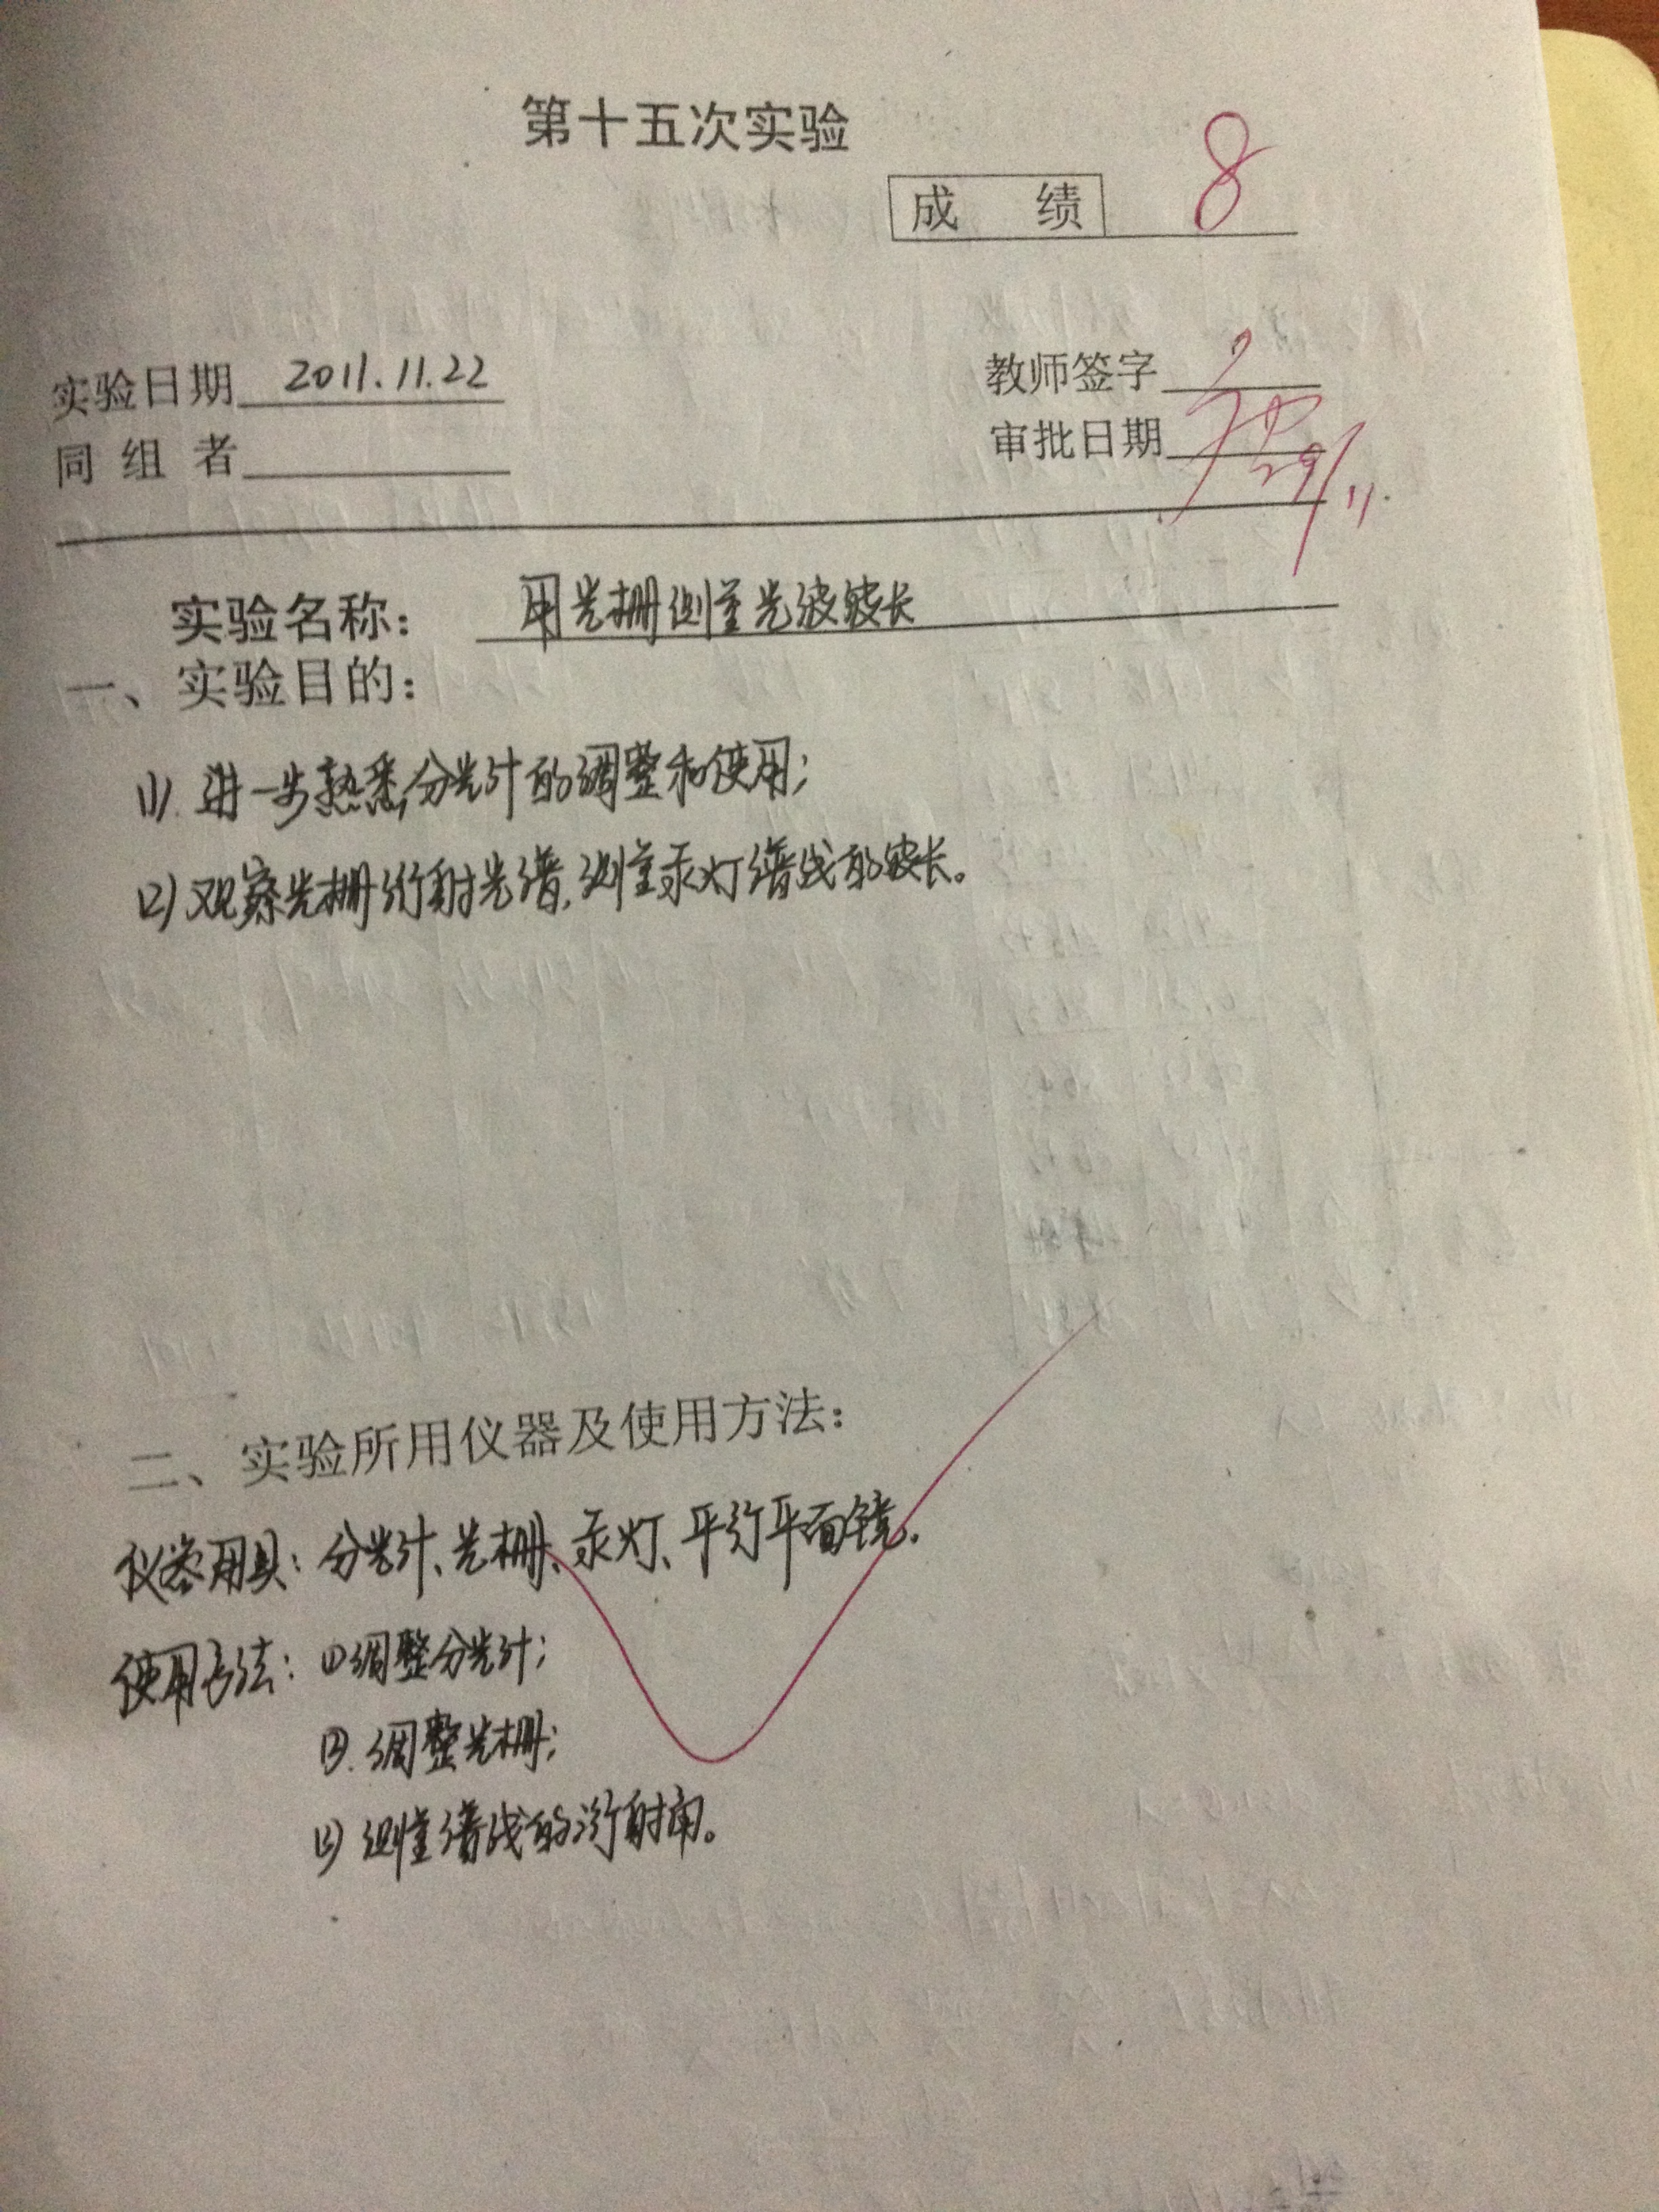 第十五次实验
成 绩 8
实验日期 2011.11.22 教师签字
同 组 者 审批日期 29/11.
实验名称: 用光栅测量光波波长
一、实验目的:
(1). 进一步熟悉分光计的调整和使用;
(2) 观察光栅衍射光谱,测量汞灯谱线的波长。
二、实验所用仪器及使用方法:
仪器用具: 分光计、光栅、汞灯、平行平面镜。
使用方法: (1)调整分光计;
(2). 调整光栅;
(3) 测量谱线的衍射角。